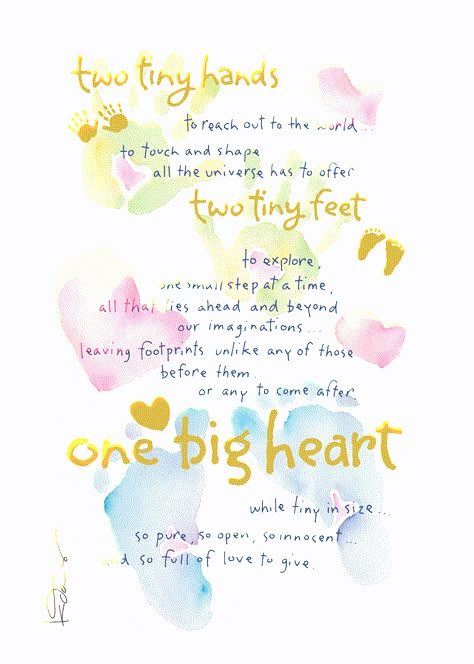 two tiny hands
to reach out to the world...
to touch and shape
all the universe has to offer
two tiny feet
to explore,
one small step at a time,
all that lies ahead and beyond
our imaginations...
leaving footprints unlike any of those
before them...
or any to come after.
one big heart
while tiny in size...
so pure, so open, so innocent...
and so full of love to give.